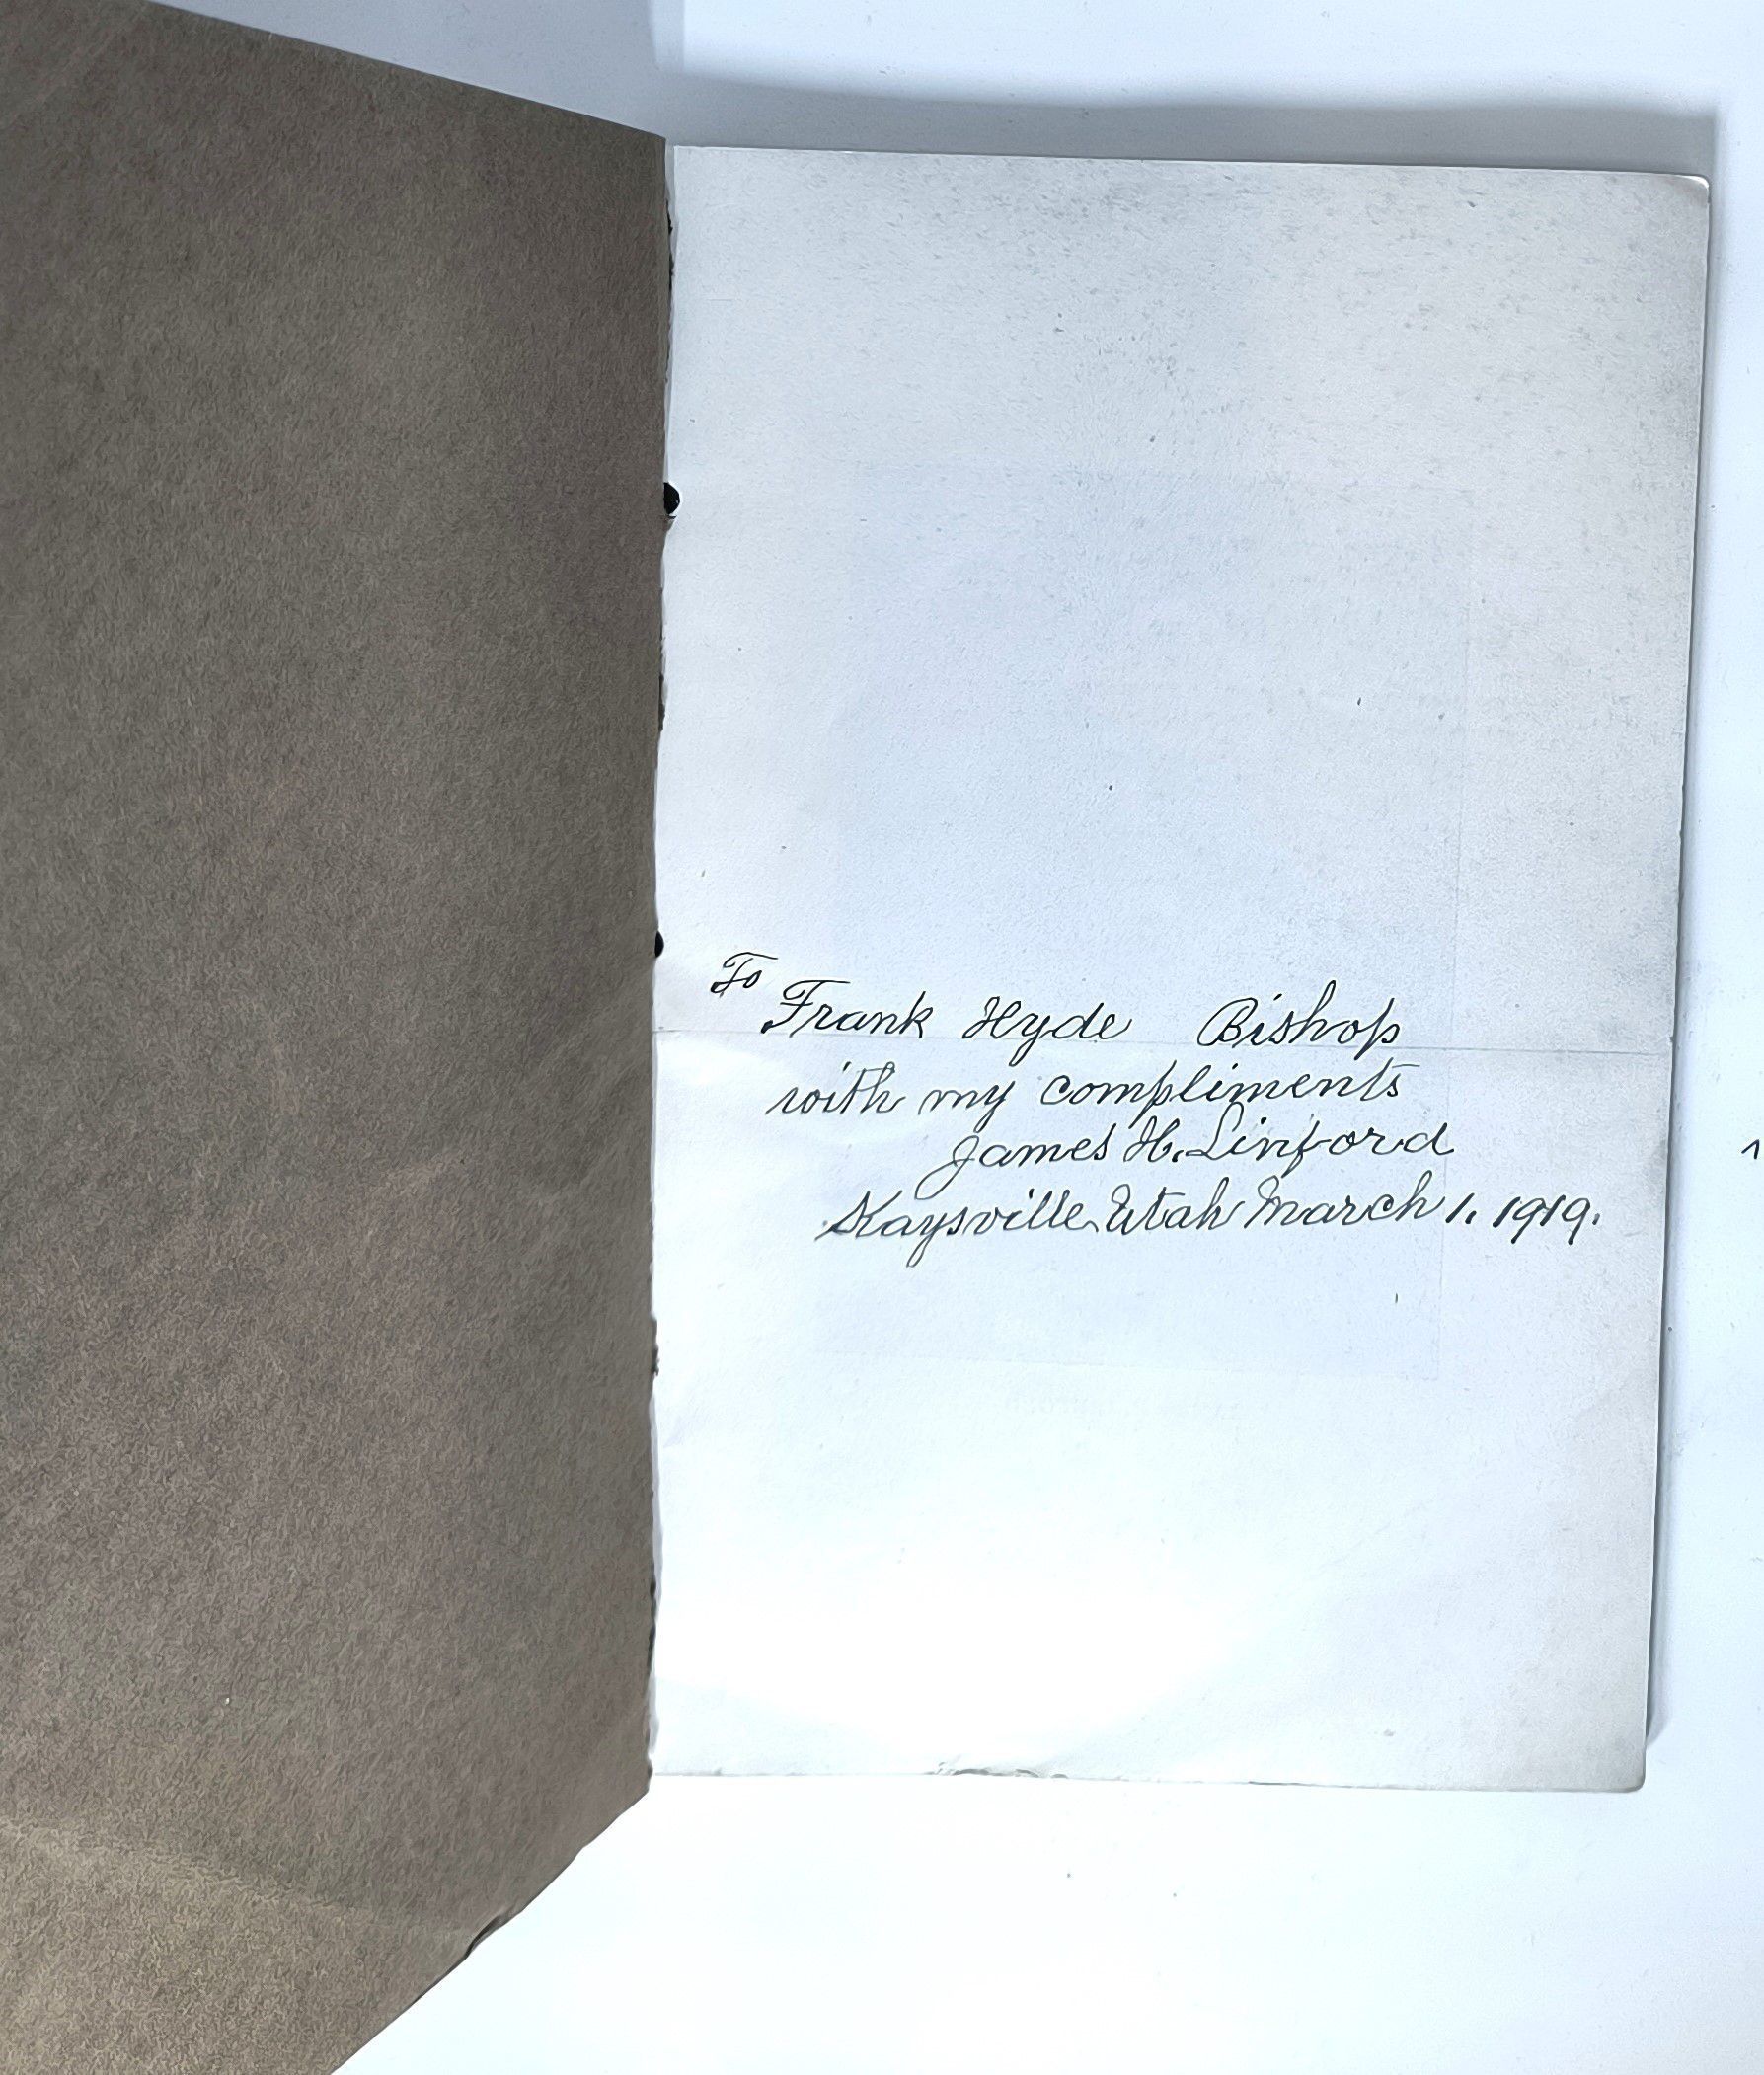 To
Frank Hyde Bishop
with my compliments
James H. Linford
Kaysville Utah March 1. 1919.